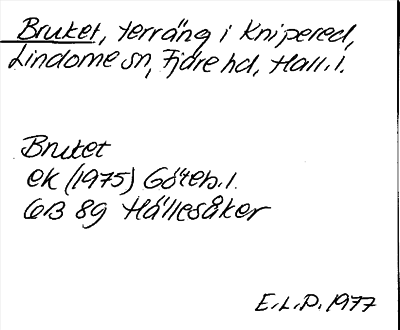 Bruket, terräng i Knipered,
Lindome sn, Fjäre hd, Hall. l.
Bruket
ek (1975) Göteb. l.
6B 8g Hällesåker
E.L.P. 1977